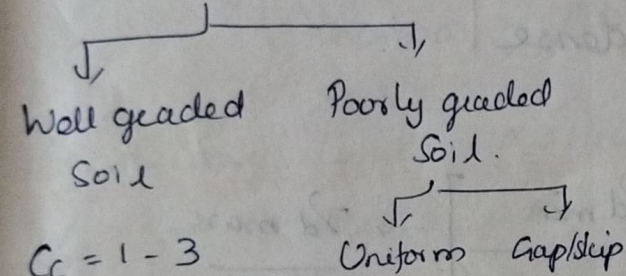 Well graded
Soil
Poorly graded
Soil.
Cc = 1 - 3
Uniform
Gap/skip